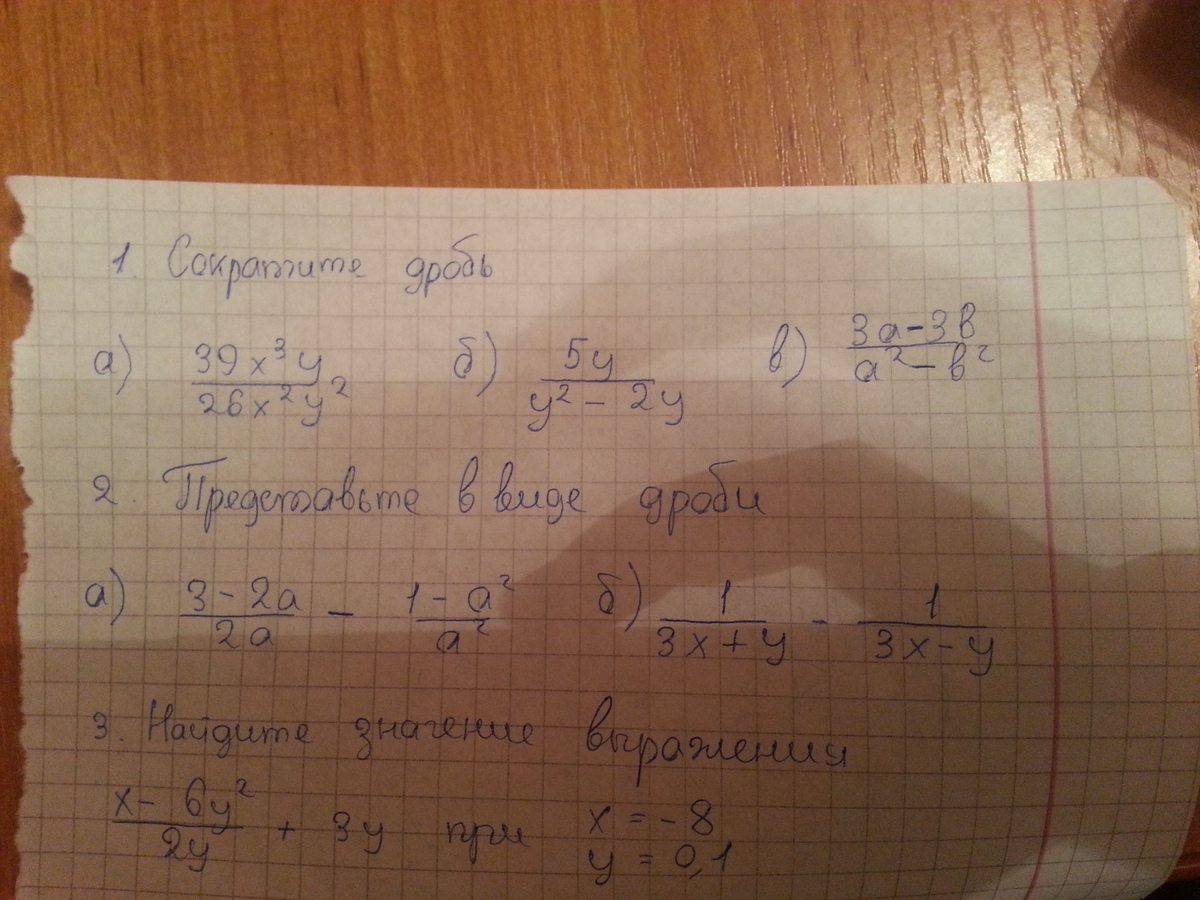 1. Сократите дробь
а) 39x³y / 26x²y² б) 5y / y² - 2y в) 3a - 3b / a² - b²
2. Представьте в виде дроби
а) 3 - 2a / 2a - 1 - a² / a² б) 1 / 3x + y - 1 / 3x - y
3. Найдите значение выражения
x - 6y² / 2y + 3y при x = -8
y = 0,1